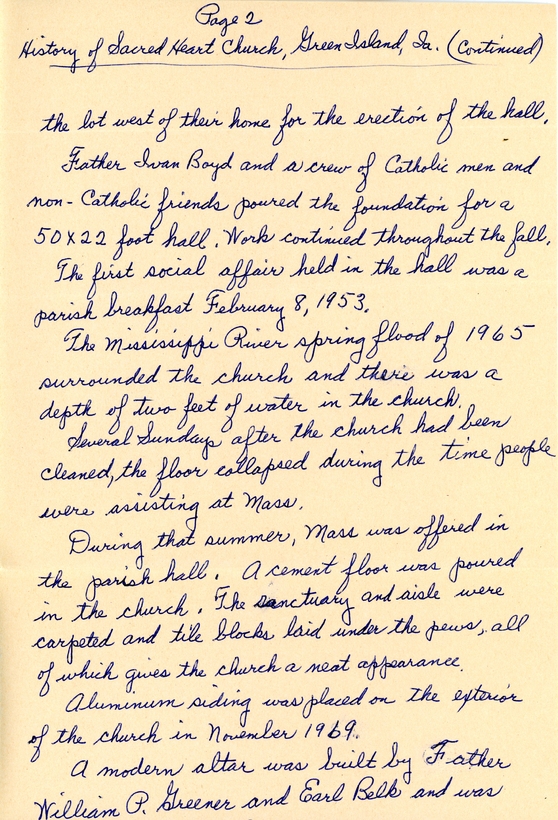 Page 2
History of Sacred Heart Church, Green Island, Ia. (Continued)
the lot west of their home for the erection of the hall.
Father Ivan Boyd and a crew of Catholic men and
non-Catholic friends poured the foundation for a
50X22 foot hall. Work continued throughout the fall.
The first social affair held in the hall was a
parish breakfast February 8, 1953.
The Mississippi River spring flood of 1965
surrounded the church and there was a
depth of two feet of water in the church.
Several Sundays after the church had been
cleaned, the floor collapsed during the time people
were assisting at Mass.
During that summer, Mass was offered in
the parish hall. A cement floor was poured
in the church. The sanctuary and aisle were
carpeted and tile blocks laid under the pews, all
of which gives the church a neat appearance.
Aluminum siding was placed on the exterior
of the church in November 1969.
A modern altar was built by Father
William P. Greener and Earl Belk and was